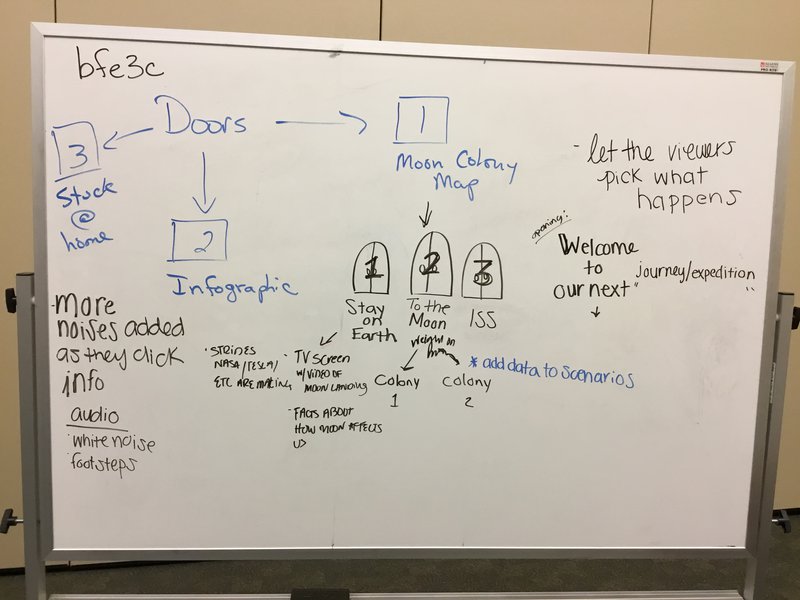 bfe3c
Doors
1
Moon Colony
Map
3
Stuck
@
home
2
Infographic
- let the viewers
pick what
happens
opening:
Welcome
to
our next "journey/expedition"
1
2
3
Stay
on
Earth
To the
Moon
weight on
ISS
- more
noises added
as they click
info
audio
· white noise
· footsteps
· STRIDES
NASA/TESLA/
ETC ARE MAKING
· TV SCREEN
W/ VIDEO OF
MOON LANDING
- FACTS ABOUT
HOW MOON AFFECTS
US
Colony
1
Colony
2
* add data to scenarios